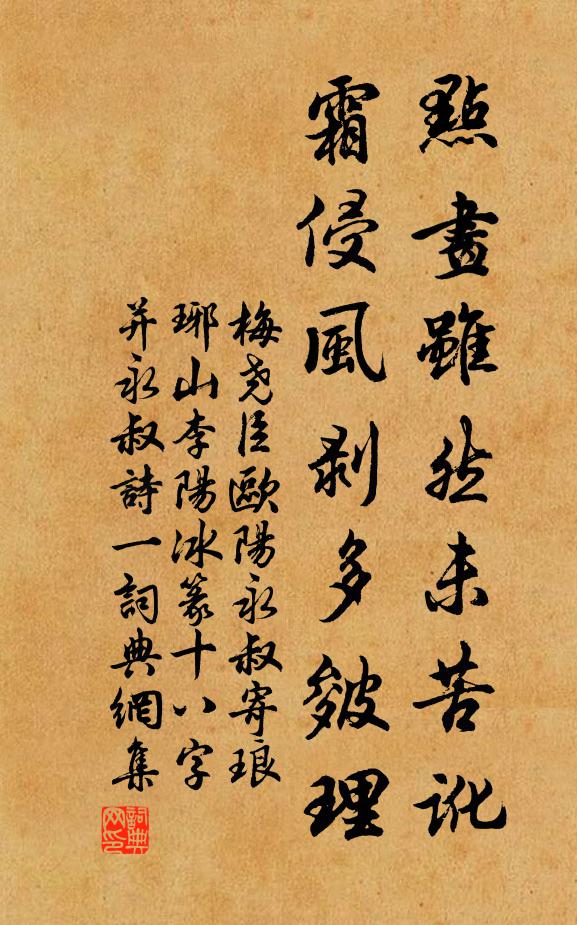 點畫雖然未苦訛
霜侵風剥多皴理
梅堯臣歐陽永叔寄琅
琊山李陽冰篆十八字
并永叔詩一詞典網集
詞典网印